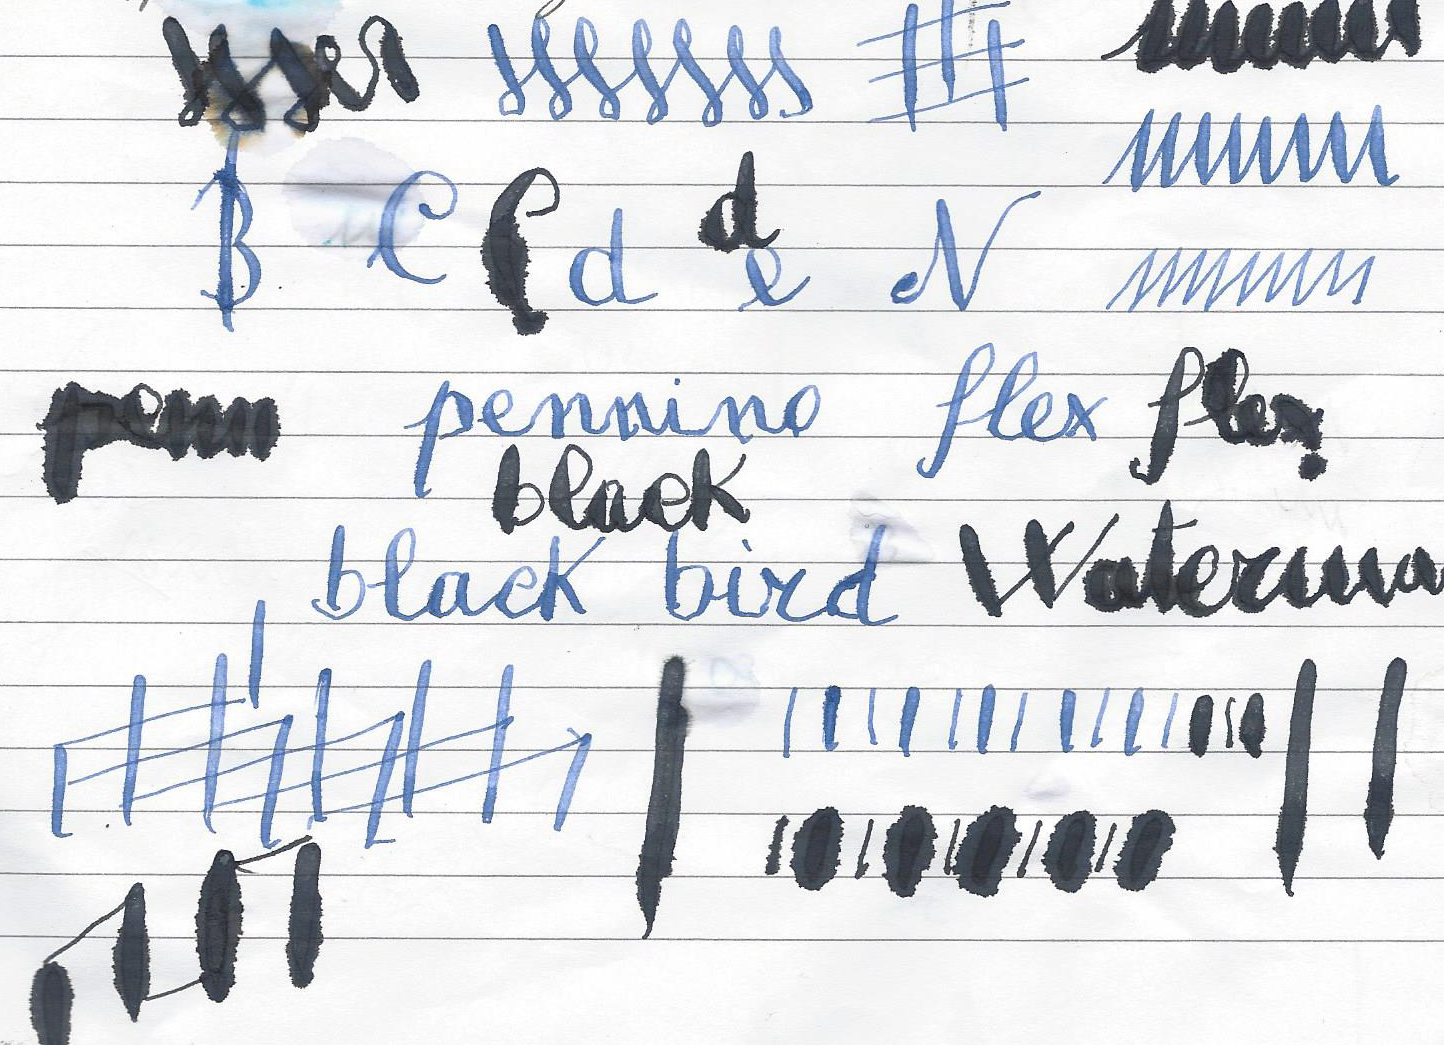 B C C d d e N
penn pennino flex flex
black
black bird Waterma